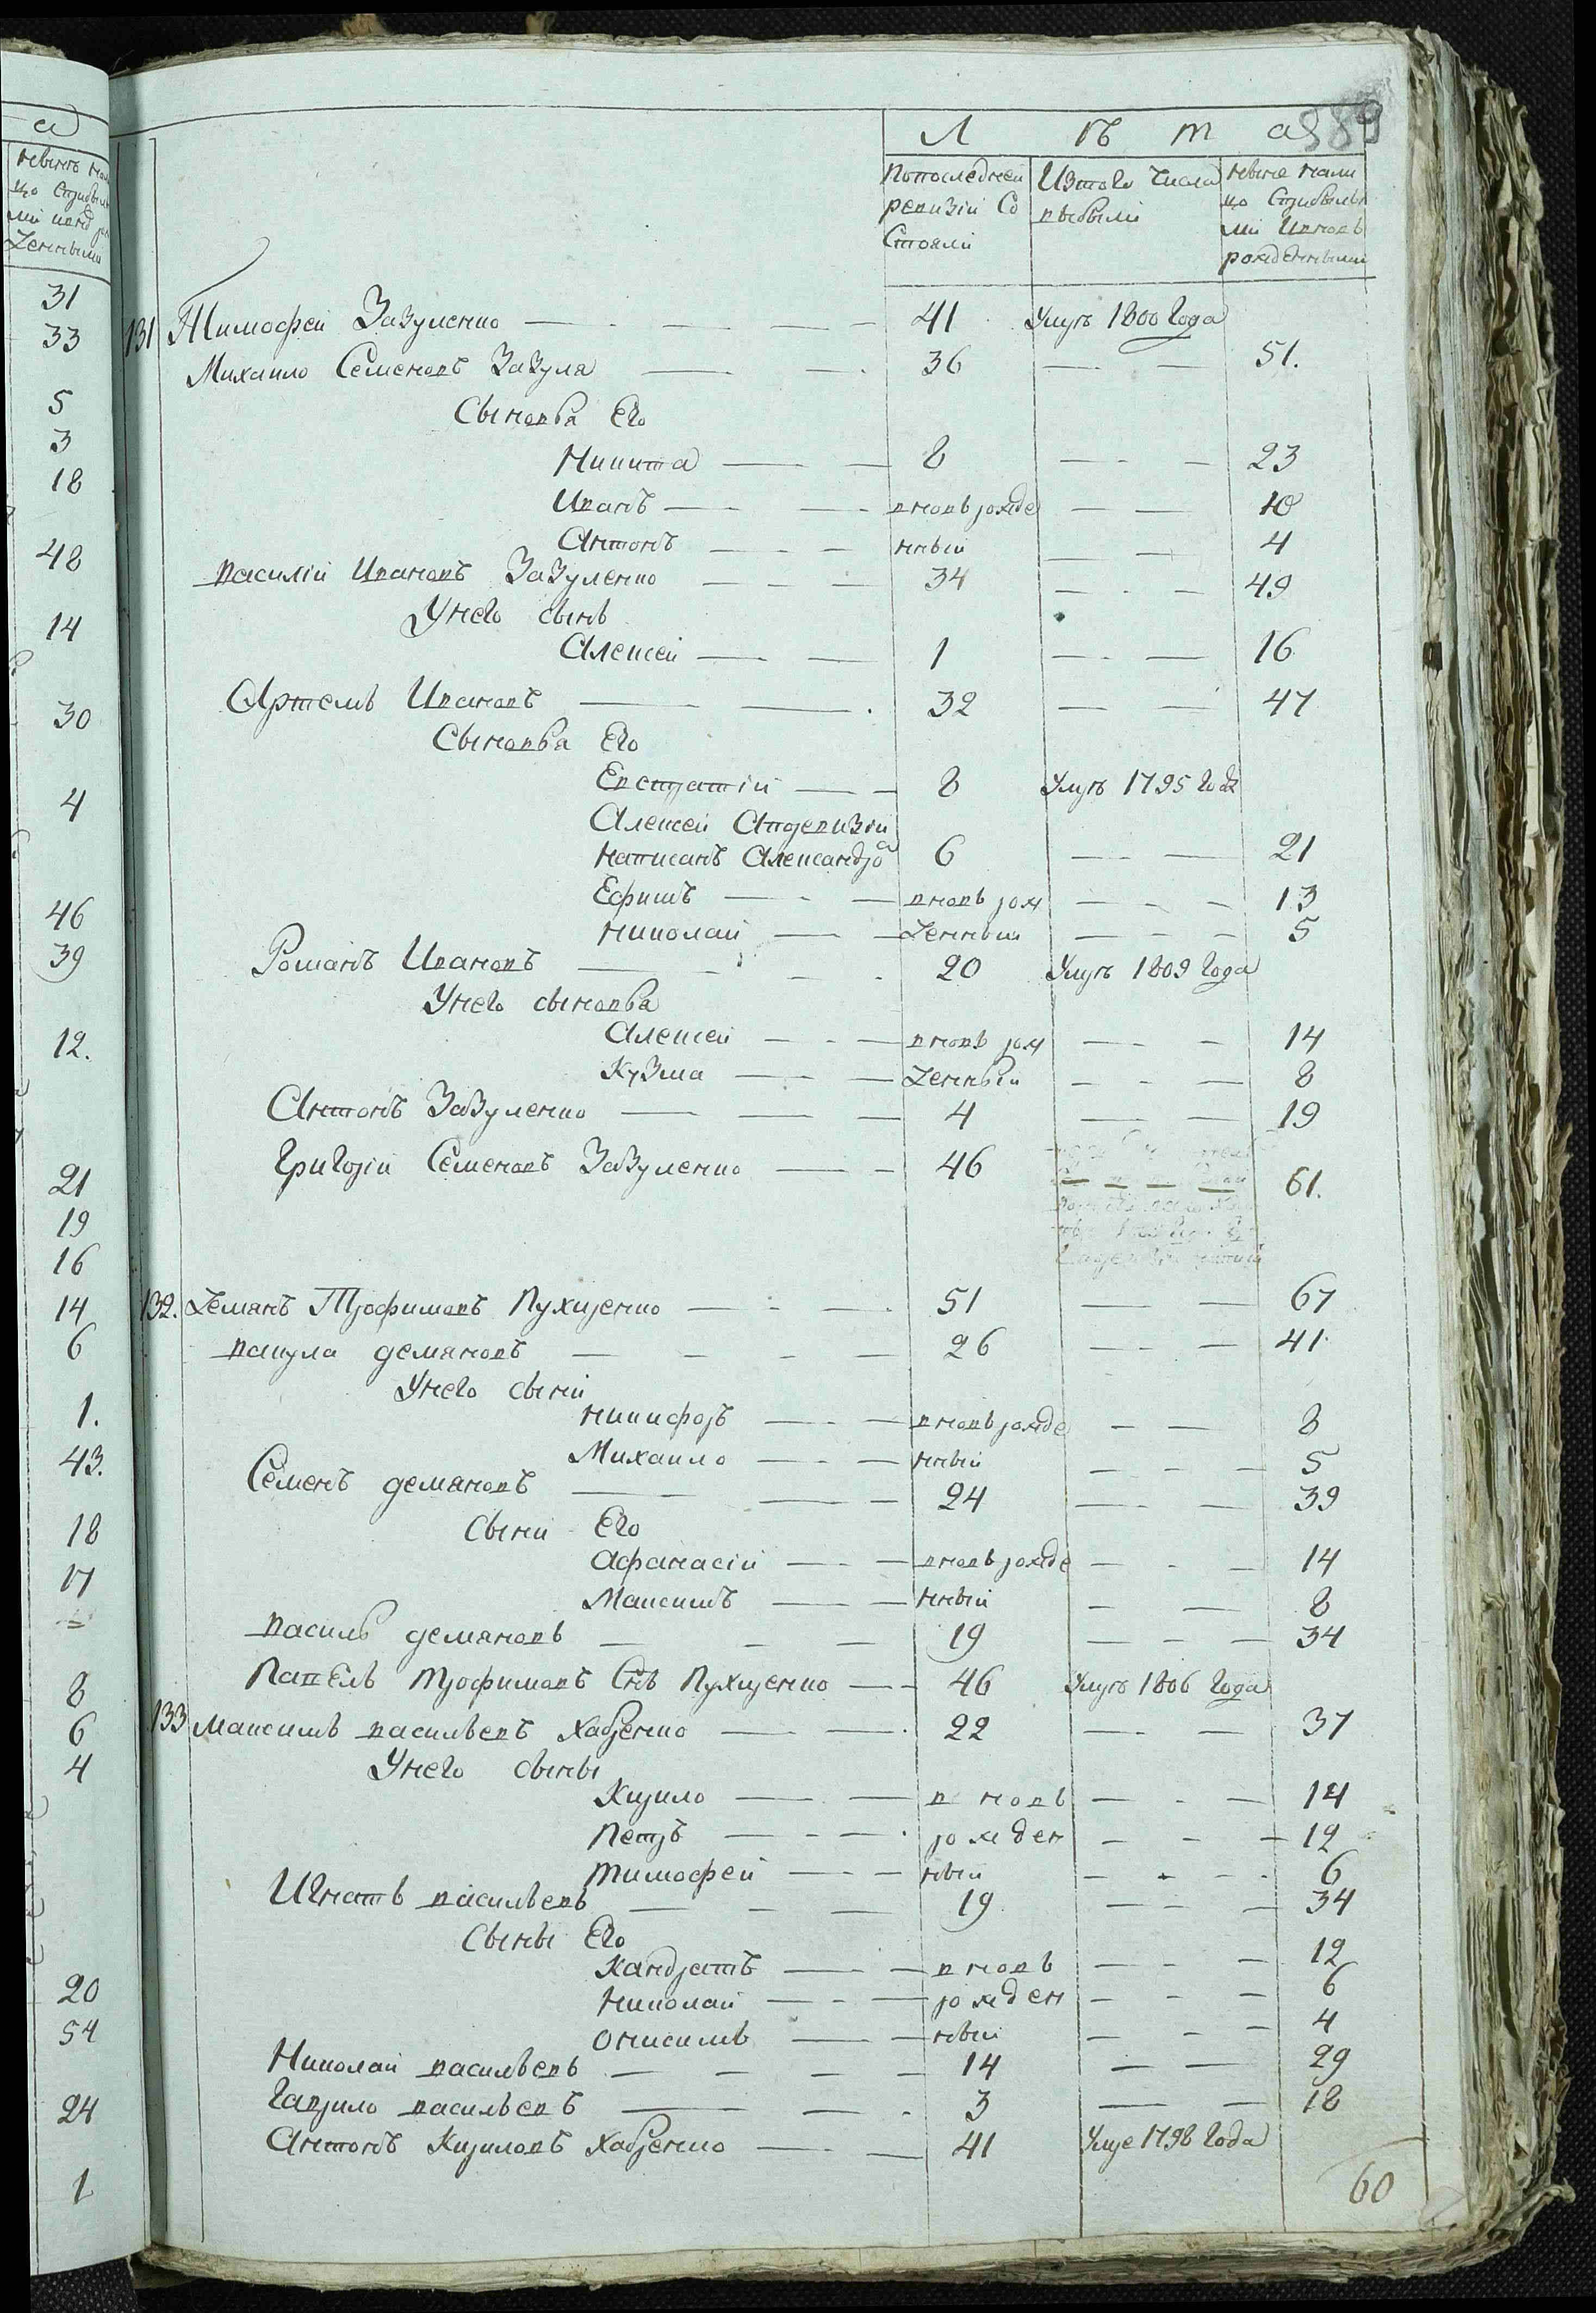 а
389
Л ѣ т а
нынѣ нали
цо Сприбылы
ми и
Женными
Попоследней
ревизіи Со
Стояли
Изтого Числа
выбыли
нынѣ нали
цо Сприбылы
ми Ивновь
рожденными
31
33
5
3
18
48
14
30
4
46
39
12.
21
19
16
14
6
1.
43.
18
17
8
6
4
20
54
24
1
131 Тимофей Зазуленко 41 Умръ 1800 Года
Михаило Семеновъ Зазуля 36 51.
Сыновья Его
Никита 8 23
Иванъ вновь рожде 10
Антонъ нный 4
Василій Ивановъ Зазуленко 34 49
Унего сынъ
Алексей 1 16
Артемъ Ивановъ 32 47
Сыновья Его
Евстратій 8 Умръ 1795 Года
Алексей Апоревизіи
Написанъ Александро 6 21
Ефимъ вновь рож 13
Николай Денный 5
Романъ Ивановъ 20 Умръ 1809 Года
Унего сыновья
Алексей вновь рож 14
Кузма Денный 8
Антонъ Зазуленко 4 19
Григорій Семеновъ Зазуленко 46 61.
132. Демянъ Трофимовъ Пухиренко 51 67
Вакула демяновъ 26 41
Унего сыни
Никифоръ вновь рожде 8
Михаило нный 5
Семенъ демяновъ 24 39
Сыни Его
Афанасій вновь рожде 14
Максимъ нный 8
Василь демяновъ 19 34
Павелъ Трофимовъ Снъ Пухиренко 46 Умръ 1806 Года
133 Максимъ васильевъ Хабренко 22 37
Унего сыны
Кирило вновь 14
Петръ рожден 12
Тимофей ный 6
Игнатъ васильевъ 19 34
Сыны Его
Кандратъ вновь 12
Николай рожден 6
Онисимъ ный 4
Николай васильевъ 14 29
Гаврило васильевъ 3 18
Антонъ Кириловъ Хабренко 41 Умре 1798 Года
60